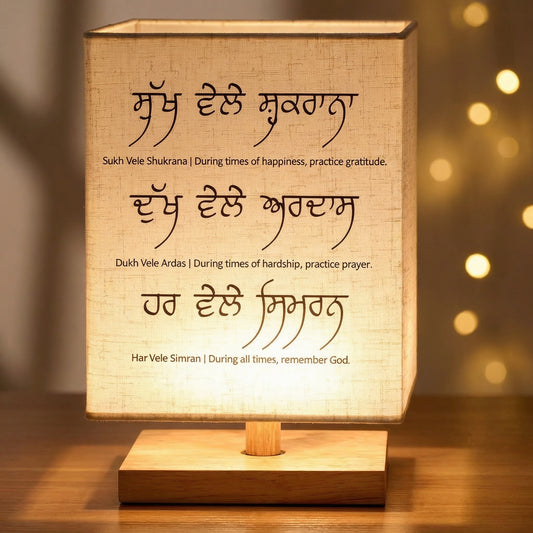 ਸੁੱਖ ਵੇਲੇ ਸ਼ੁਕਰਾਨਾ
Sukh Vele Shukrana | During times of happiness, practice gratitude.
ਦੁੱਖ ਵੇਲੇ ਅਰਦਾਸ
Dukh Vele Ardas | During times of hardship, practice prayer.
ਹਰ ਵੇਲੇ ਸਿਮਰਨ
Har Vele Simran | During all times, remember God.